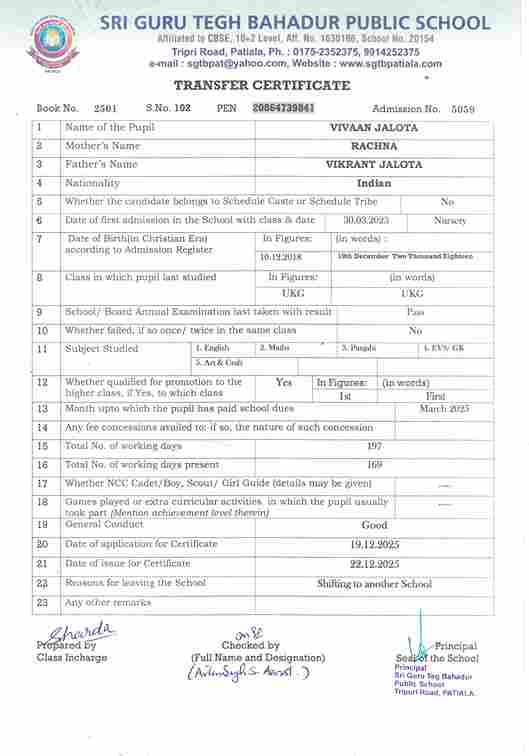 SRI GURU TEGH BAHADUR PUBLIC SCHOOL
Affiliated to CBSE, 10+2 Level, Aff. No. 1630166, School No. 20154
Tripri Road, Patiala, Ph. : 0175-2352375, 9914252375
e-mail : sgtbpat@yahoo.com, Website : www.sgtbpatiala.com
TRANSFER CERTIFICATE
Book No. 2501 S.No. 102 PEN 20864739841 Admission No. 5059
1 Name of the Pupil VIVAAN JALOTA
2 Mother's Name RACHNA
3 Father's Name VIKRANT JALOTA
4 Nationality Indian
5 Whether the candidate belongs to Schedule Caste or Schedule Tribe No
6 Date of first admission in the School with class & date 30.03.2023 Nursery
7 Date of Birth(in Christian Era) In Figures: (in words) :
according to Admission Register 10.12.2018 10th December Two Thousand Eighteen
8 Class in which pupil last studied In Figures: (in words)
UKG UKG
9 School/ Board Annual Examination last taken with result Pass
10 Whether failed, if so once/ twice in the same class No
11 Subject Studied 1. English 2. Maths 3. Punjabi 4. EVS/ GK
5. Art & Craft
12 Whether qualified for promotion to the Yes In Figures: (in words)
higher class, if Yes, to which class 1st First
13 Month upto which the pupil has paid school dues March 2025
14 Any fee concessions availed to: if so, the nature of such concession
15 Total No. of working days 197
16 Total No. of working days present 169
17 Whether NCC Cadet/Boy, Scout/ Girl Guide (details may be given) ----
18 Games played or extra curricular activities in which the pupil usually ----
took part (Mention achievement level therein)
19 General Conduct Good
20 Date of application for Certificate 19.12.2025
21 Date of issue for Certificate 22.12.2025
22 Reasons for leaving the School Shifting to another School
23 Any other remarks
Sharda
Prepared by Checked by Principal
Class Incharge (Full Name and Designation) Seal of the School
Principal
Sri Guru Teg Bahadur
Public School
Tripuri Road, PATIALA.